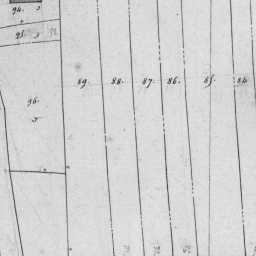 94.
95.
89. 88. 87. 86. 85. 84.
96.